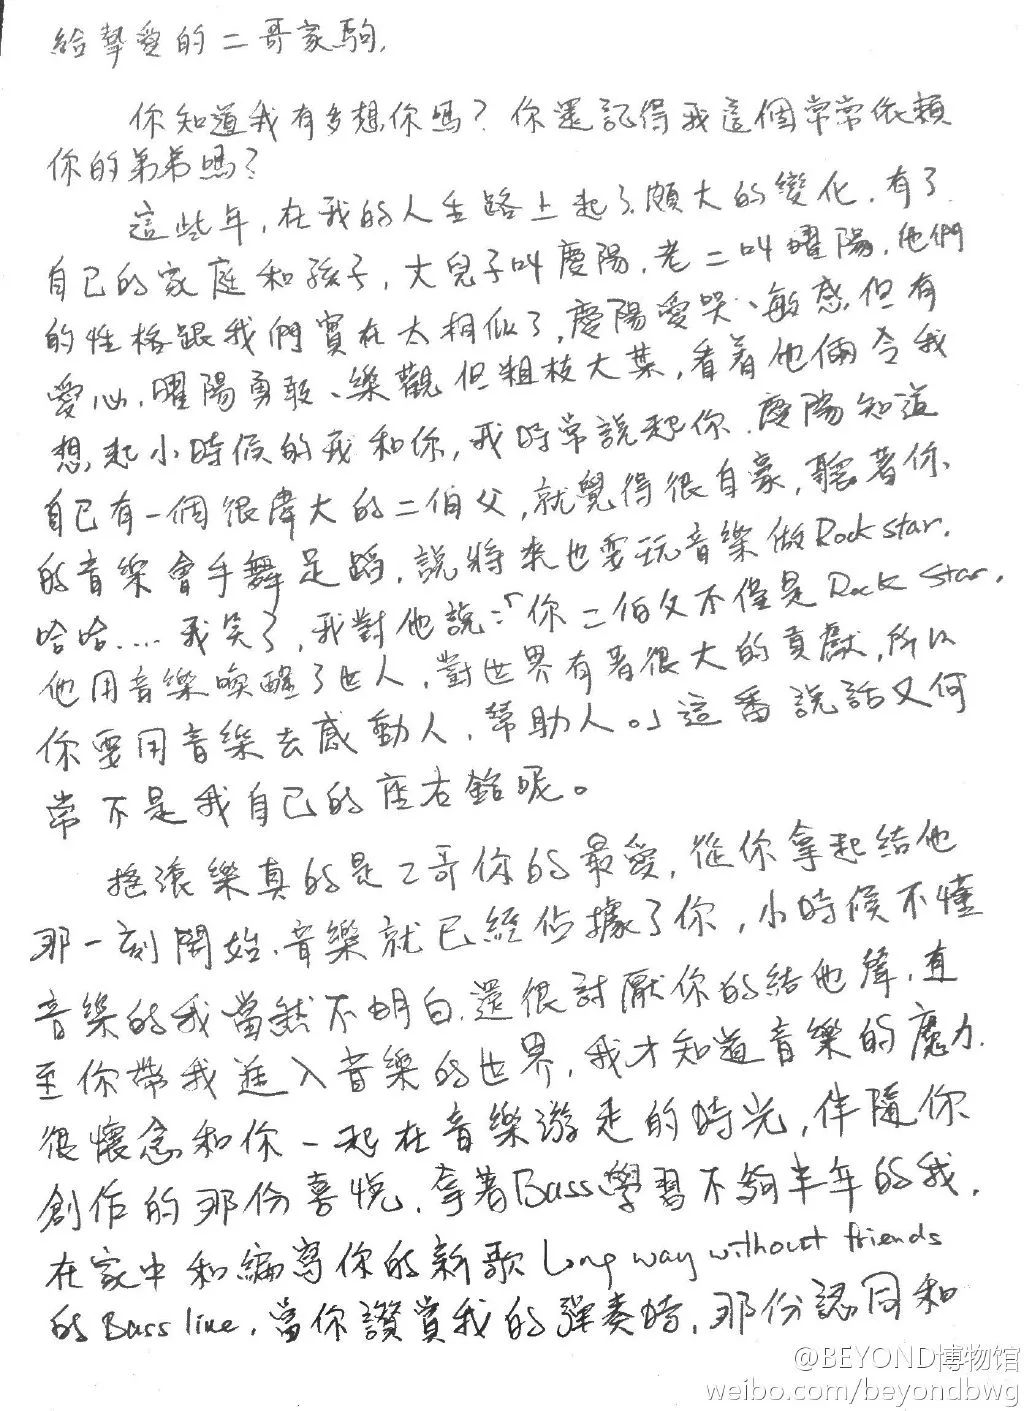 給摯愛的二哥家駒,
你知道我有多想你嗎？你還記得我這個常常依賴
你的弟弟嗎？
這些年，在我的人生路上起了頗大的變化，有了
自己的家庭和孩子，大兒子叫慶陽，老二叫曜陽，他們
的性格跟我們實在太相似了，慶陽愛哭、敏感但有
愛心，曜陽勇敢、樂觀但粗枝大葉，看着他倆令我
想起小時候的我和你，我時常說起你，慶陽知道
自己有一個很偉大的二伯父，就覺得很自豪，聽著你
的音樂會手舞足蹈，說將來也要玩音樂做Rock star.
哈哈....我笑了，我對他說:「你二伯父不僅是Rock Star,
他用音樂喚醒了世人，對世界有着很大的貢獻，所以
你要用音樂去感動人，幫助人。」這番說話又何
常不是我自己的座右銘呢。
搖滾樂真的是二哥你的最愛，從你拿起結他
那一刻開始，音樂就已經佔據了你，小時候不懂
音樂的我當然不明白，還很討厭你的結他聲，直
至你帶我進入音樂的世界，我才知道音樂的魔力.
很懷念和你一起在音樂遊走的時光，伴隨你
創作的那份喜悅，拿著Bass學習不夠半年的我，
在家中和編寫你的新歌Long way without friends
的Bass line，當你讚賞我的彈奏時，那份認同和
@BEYOND博物馆
weibo.com/beyondbwg